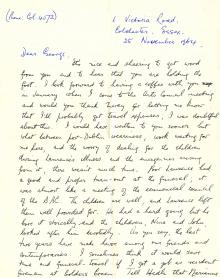 (Home: Col. 4072)
1 Victoria Road,
Colchester, Essex.
25 November 1964
Dear George,
It is nice and pleasing to get word
from you and to hear that you are holding the
fort. I look forward to having a coffee with you
in January when I come to the late Annual meeting
and would you thank Harry for letting me know
that I'll probably get travel expenses, I was doubtful
about this. I would have written to you sooner but
what between pre-Dublin, work waiting for
me here, and the worry of deciding for the children
during Laurence's illness and the emergencies arising
from it, there wasn't much time. Poor Laurence had
a good and proper turn-out at the funeral, it
was almost like a meeting of the
of the The children are well, and Laurence left
them well provided for. He had a hard going but he
bore it stoically and the children, Nora and John
looked after him devotedly. As you say, the last
two years have made havoc among our friends and
contemporaries. I sometimes think it would save
time and general travel if I got a job as resident
foreman at Golders Green. Tell Hedli that Marianne